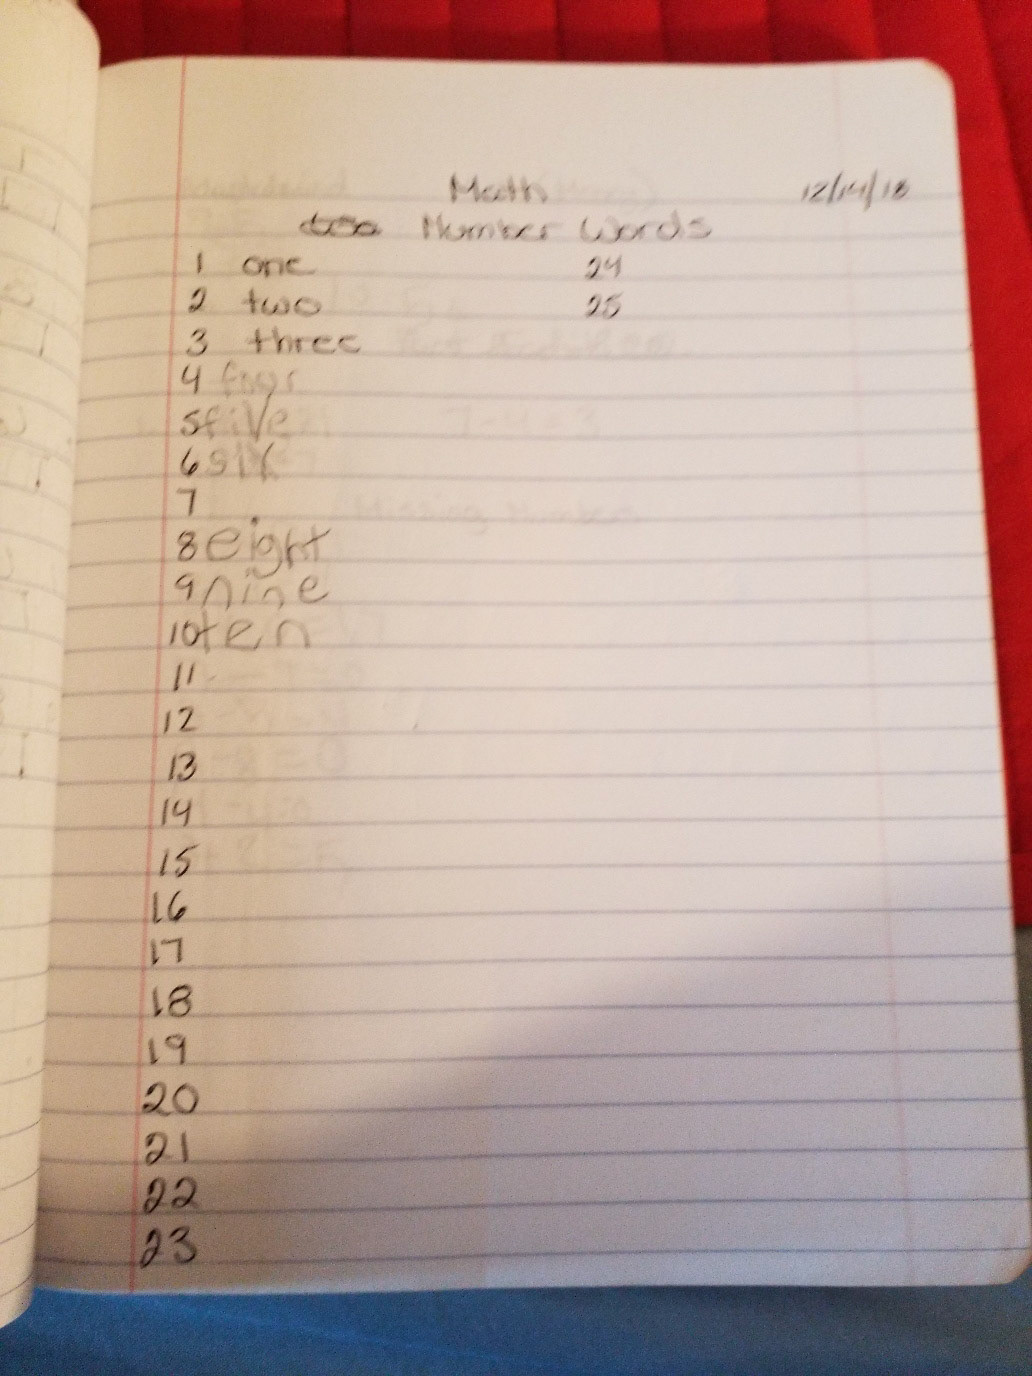 Math 12/14/18
Number Words
1 one 24
2 two 25
3 three
4 four
5 five
6 six
7
8 eight
9 nine
10 ten
11
12
13
14
15
16
17
18
19
20
21
22
23